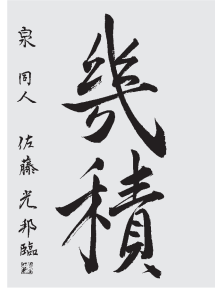 幾積
泉 同人 佐藤光邦臨